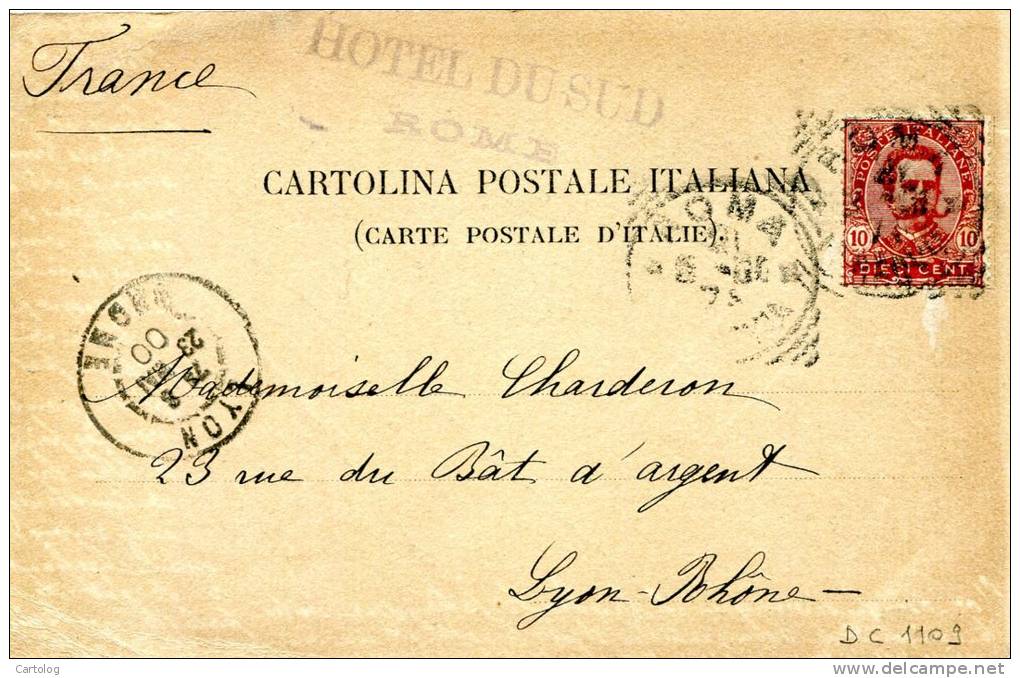 France
HOTEL DU SUD
ROME
CARTOLINA POSTALE ITALIANA
(CARTE POSTALE D'ITALIE).
POSTE ITALIANE
10 10
DIECI CENT.
ROMA
LYON RHONE
23
00
Mademoiselle Charderon
23 rue du Bât d'argent
Lyon-Rhône-
DC 1109
Cartolog
delcampe.net